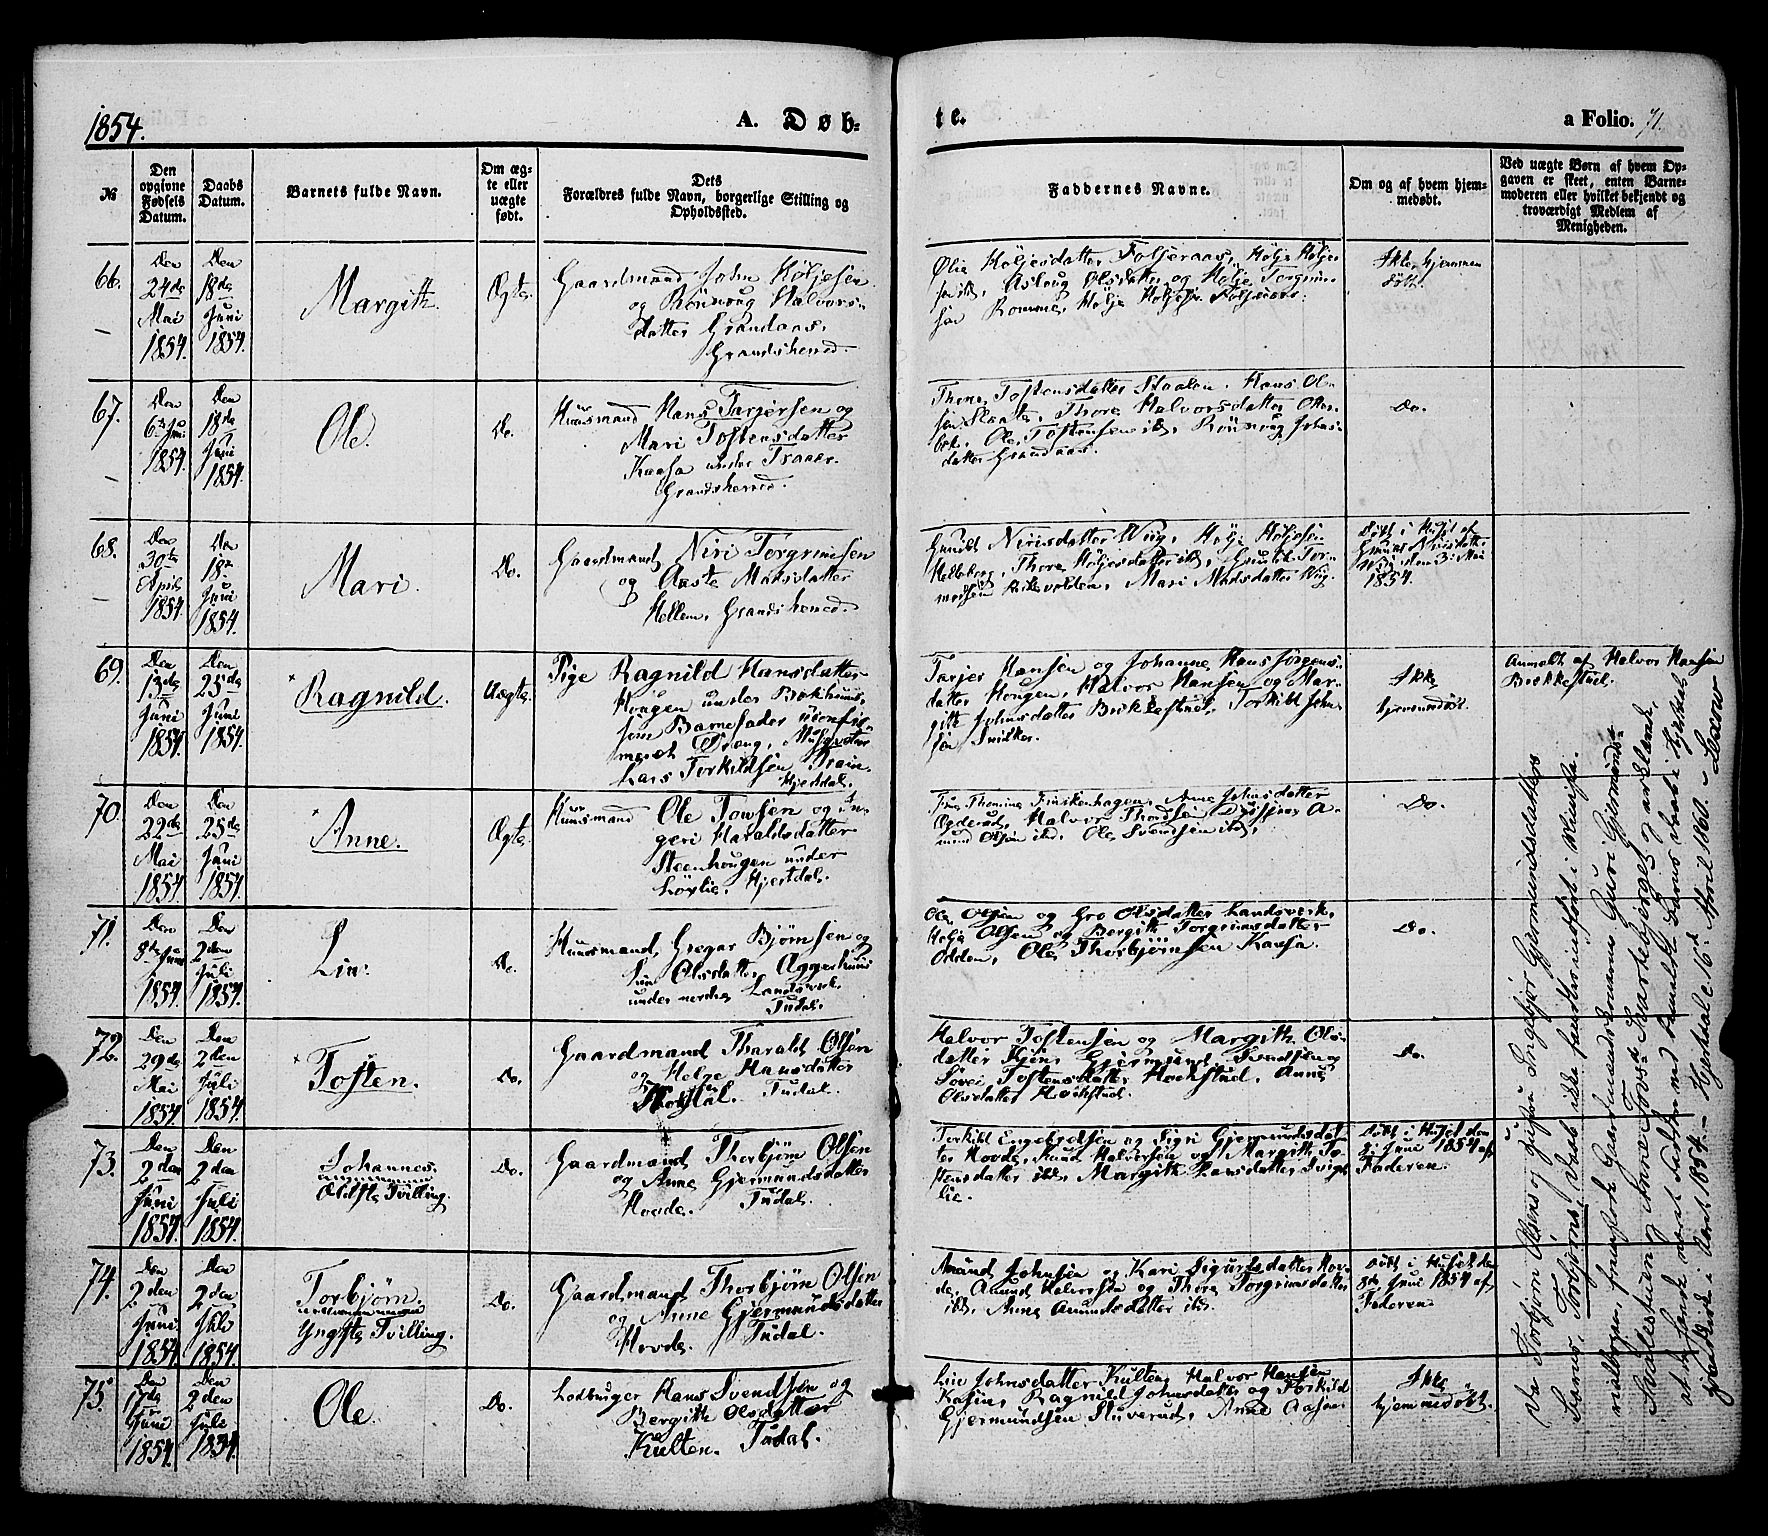 1854.
A. Døb-
te.
a Folio. 71.
№
Den opgivne Fødsels Datum.
Daabs Datum.
Barnets fulde Navn.
Om ægte eller uægte født.
Dets
Forældres fulde Navn, borgerlige Stilling og Opholdssted.
Faddernes Navne.
Om og af hvem hjemmedøbt.
Ved uægte Børn af hvem Opgaven er skeet, enten Barnemoderen eller hvilket bekjendt og troværdigt Medlem af Menigheden.
66.
Den 24de Mai 1854.
Den 18de Juni 1854.
Margith.
Ægte
Gaardmand John Høljesen
og Rönnug Halvors-
datter Grandaas,
Grandsherred.
Ølie Høljesdatter Foljeraas, Hølje Høljes
sen ibd, Aslaug Olsdatter og Hølje Torgrim-
sen Romme, Hølje Høljesen Foljeraas.
Ikke hjemme
døbt.
67.
Den 6te Juni 1854.
Den 18de Juni 1854.
Ole.
Do.
Huusmand Hans Tarjersen og
Mari Tostensdatter
Kaasa under Traaer.
Grandsherred.
Thone Tostensdatter Staalen. Hans Ol-
sen Slaatte, Thore Halvorsdatter Otter-
bek, Ole Tostensen ibd, Rönnug Johns-
datter Grandaas.
Do.
68.
Den 30te April 1854.
Den 18de Juni 1854.
Mari.
Do.
Gaardmand Niri Torgrimsen
og Aaste Madsdatter
Hellem, Grandsherred.
Gunild Nirisdatter Wiig, Hølje Høljesen
Helleberg, Thora Høljesdatter ibd, Gunulf Tor-
modsen, Mari Madsdatter Wiig.
Døbt i Huset af
Gunild Nirisdatter
Wiig den 3die Mai
1854.
69.
Den 13de Juni 1854.
Den 25de Juni 1854.
Ragnild.
Uægte
Pige Ragnild Hansdatter
Hougen under Brækhuus,
som Barnefader
meret Dreng,
Lars Torkildsen
Hjertdal.
Tarjer Hansen og Johanne Hans Jørgens-
datter Hougen, Halvor Hansen og Mar-
gith Johnsdatter Brekkestuel, Torkild John-
sen
Ikke
hjemmedøbt.
Anmeldt af Halvor Hansen
Brekkestuel.
70.
Den 22de Mai 1854.
Den 25de Juni 1854.
Anne.
Ægte
Huusmand Ole Tovsen og In-
geri Haraldsdatter
Steenhougen under
Løvlie, Hjertdal.
Finkenhagen, Anne Johnsdatter
Halvor Thorssen A-
mund Olsen ibd, Ole Svendsen ibd,
Do.
71.
Den 8de Juni 1854.
Den 2den Juli 1854.
Liv.
Do.
Huusmand Gregar Bjørnsen og
Olsdatter Aggerhuus
under nordre Landsverk.
Tudal.
Ole Olsen og Gro Olsdatter Landsverk,
Helje Olsen og Bergith Torgrimsdatter
Odden, Ole Thorbjørnsen Kaasa.
Do.
72.
Den 29de Mai 1854.
Den 2den Juli 1854.
Tosten.
Do.
Gaardmand Tharald Olsen
og Helge Hansdatter
Tudal.
Halvor Tostensen og Margith Ols-
datter Gjermund Svendsen og
Tostensdatter Hockstud. Anne
Olsdatter Hockstud.
Do.
73.
Den 2den Juni 1854.
Den 2den Juli 1854.
Johannes.
Ældste Tvilling.
Do.
Gaardmand Thorbjørn Olsen
og Anne Gjermundsdatter
Hovde. Tudal.
Torkild Engebredsen og Sigri Gjermundsdat-
ter Hovde, Knud Halvorsen og Margith To-
stensdatter ibd, Margith Hansdatter
lie.
Døbt i Huset den
Juni 1854 af
Faderen.
74.
Den 2den Juni 1854.
Den 2den Juli 1854.
Torbjørn.
Yngste Tvilling.
Do.
Gaardmand Thorbjørn Olsen
og Anne Gjermundsdatter
Hovde. Tudal.
Amund Johnsen og Kari Sigurdsdatter Hov-
de, Amund Halvorsen og Thora Torgrimsdatter
ibd, Anne Amundsdatter ibd.
Døbt i Huset den
Juni 1854 af
Faderen.
75.
Den 17de Juni 1854.
Den 2den Juli 1854.
Ole.
Do.
Lodbruger Hans Svendsen og
Bergith Olsdatter
Kulten. Tudal.
Liv Johnsdatter Kulten, Halvor Hansen
Kasin, Ragnild Johnsdatter og Torkild
Gjermundsen Stuverud, Anne
Ikke
hjemmedøbt.
Da Torbjørn Olsens og Hustru Ingebjør Gjermundsdatters
Torbjørns Daab ikke fandtes indført i Ministe-
rialbogen, fremstod Gaardmandskonerne Guri Gjermunds-
og Anne Tovsd. og erklærede,
at de havde været Faddere ved Barns Daab i Hjertdal
i Aaret 1854. — Hjertdal d. 16de April 1860.